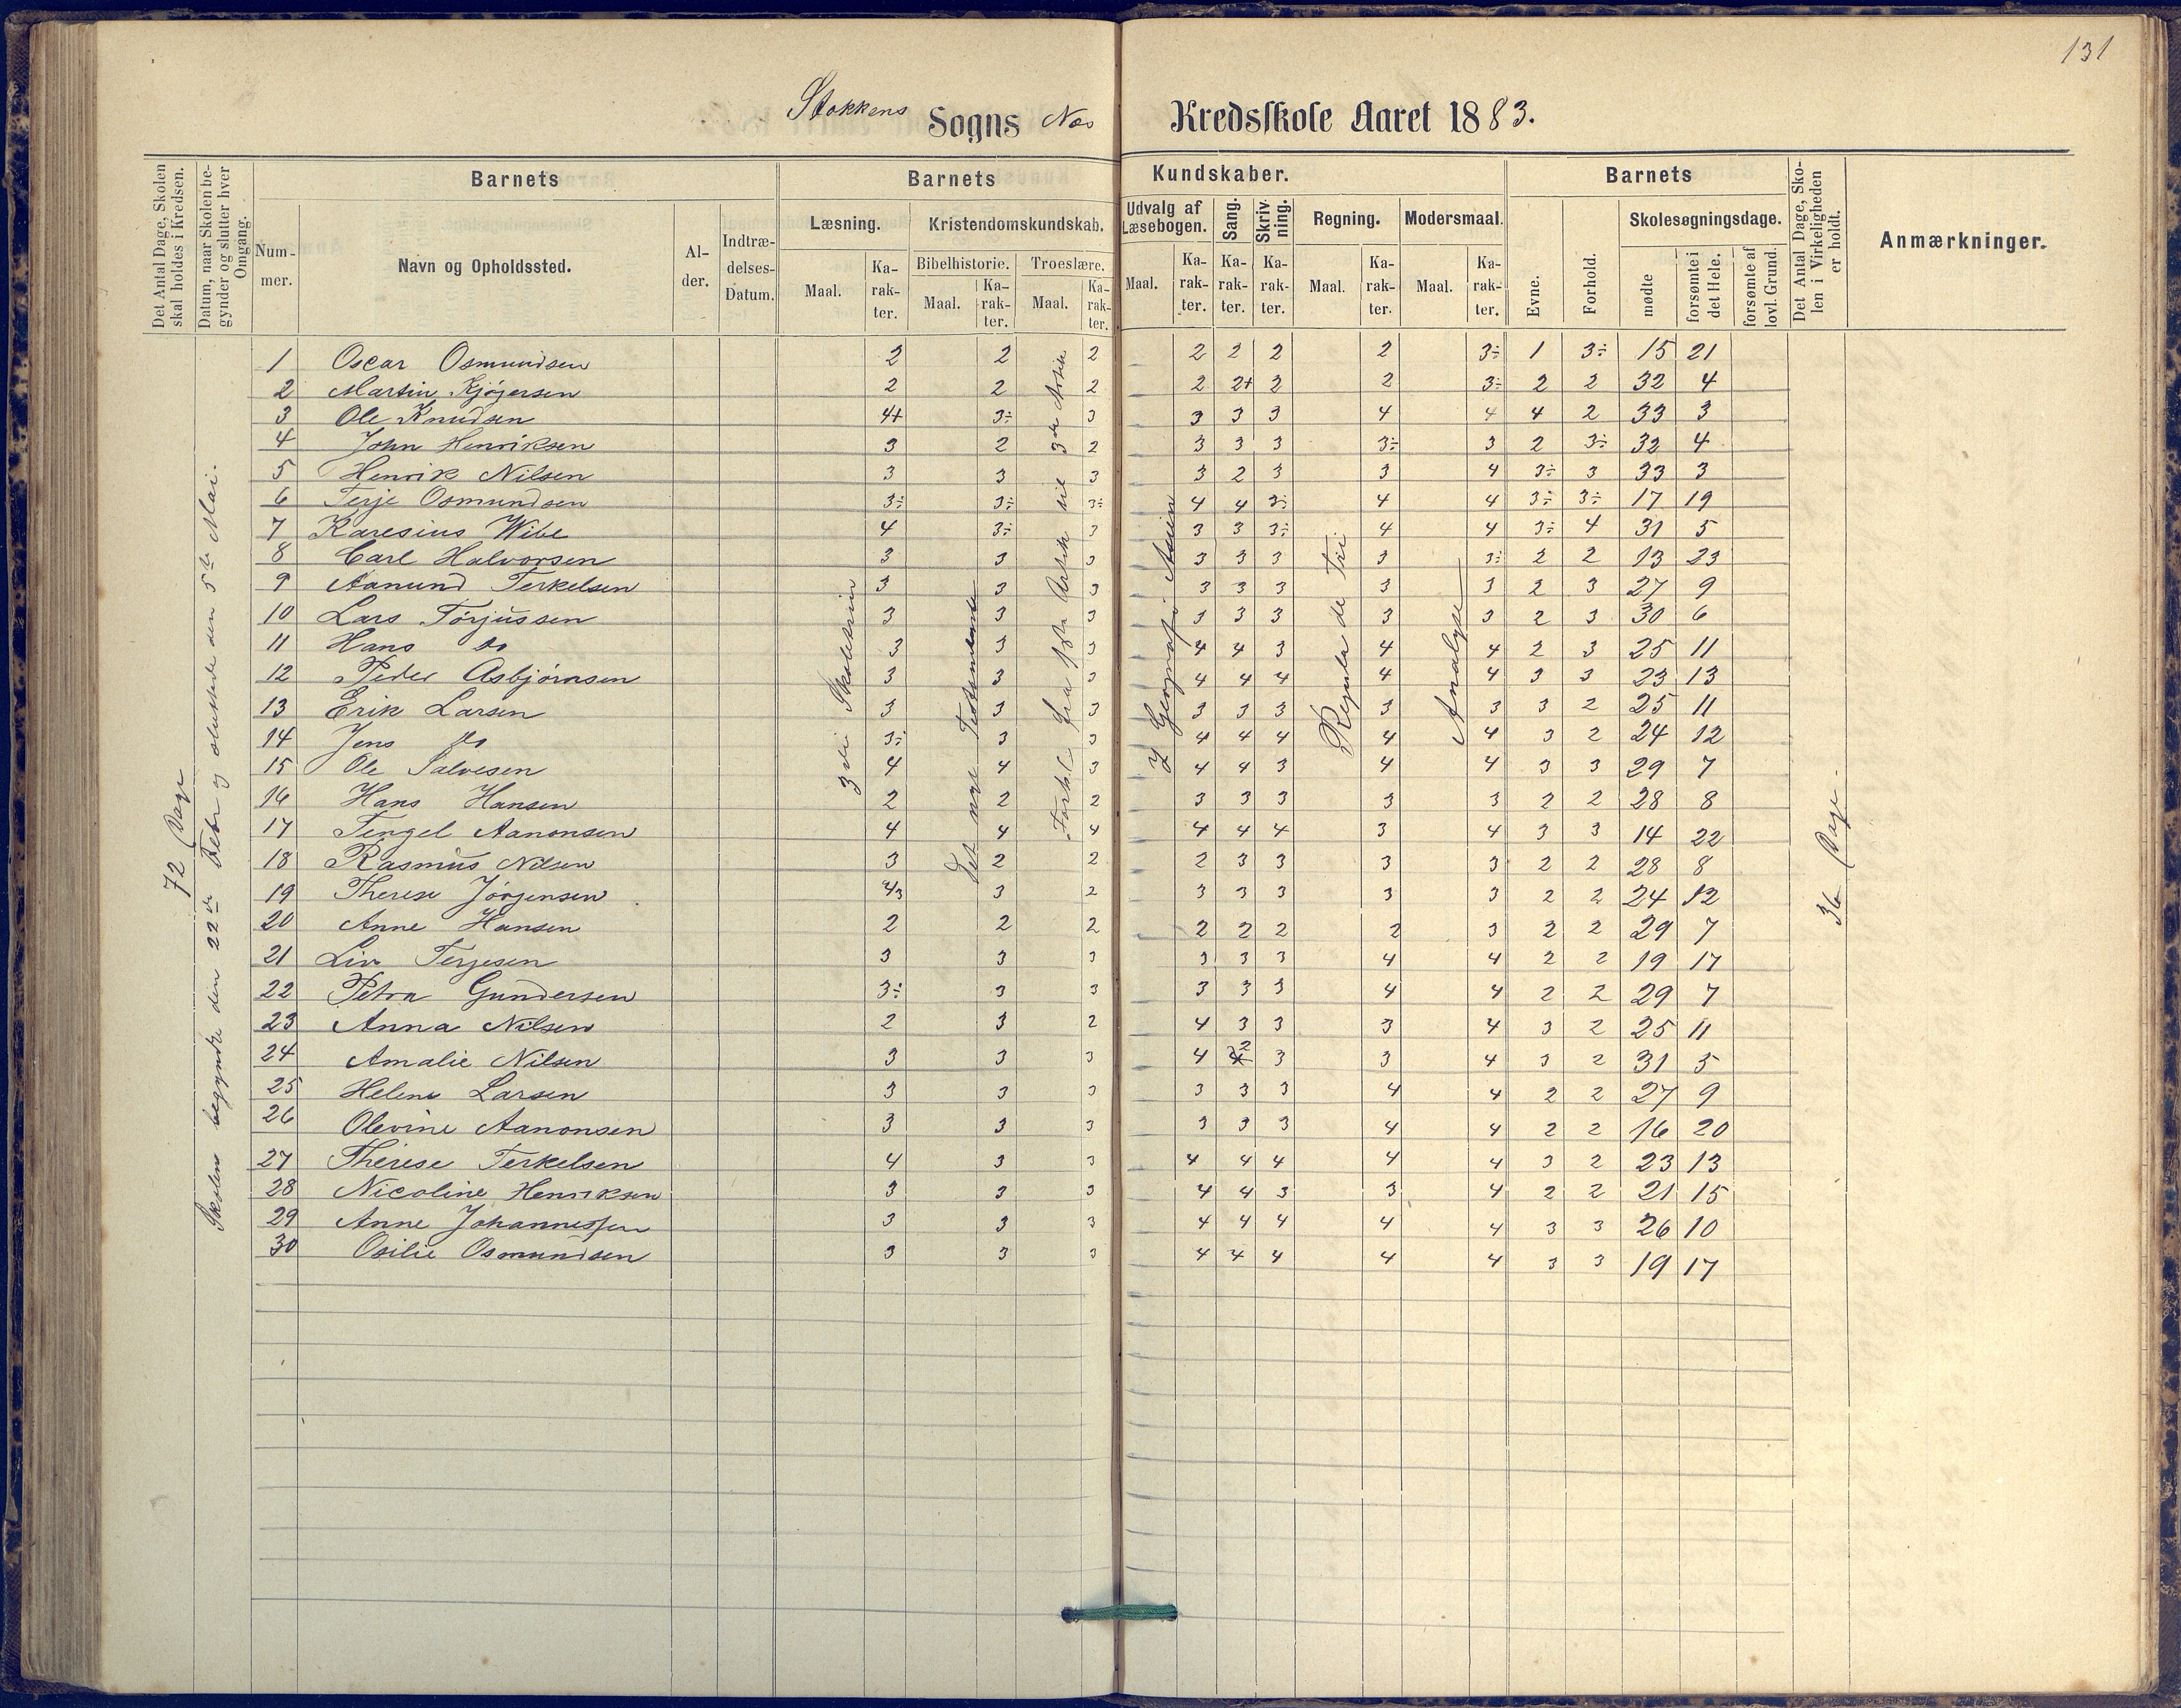 131
Stokkens Sogns Næs Kredsskole Aaret 1883.
Det Antal Dage, Skolen skal holdes i Kredsen.
Datum, naar Skolen begynder og slutter hver Omgang.
Barnets
Nummer.
Navn og Opholdssted.
Alder.
Indtrædelses-Datum.
Barnets Kundskaber.
Læsning.
Maal. Karakter.
Kristendomskundskab.
Bibelhistorie. Troeslære.
Maal. Karakter. Maal. Karakter.
Udvalg af Læsebogen.
Maal. Karakter.
Sang. Karakter.
Skrivning. Karakter.
Regning. Maal. Karakter.
Modersmaal. Maal. Karakter.
Barnets
Evne. Forhold.
Skolesøgningsdage.
mødte forsømte i det Hele. forsømte af lovl. Grund.
Det Antal Dage, Skolen i Virkeligheden er holdt.
Anmærkninger.
72 Dage
Skolens begyndte den 22de Febr og sluttede den 5te Mai.
3die Skoletrin
Det nye Testamente
Forkl fra 1ste Artik til 3die Artikk
I Geografi Asien
Regula de Tri
Analyse
36 Dage.
1 Oscar Osmundsen 2 2 2 2 2 2 2 3÷ 1 3÷ 15 21
2 Martin Kjøgersen 2 2 2 2 2+ 2 2 3÷ 2 2 32 4
3 Ole Knudsen 4+ 3÷ 3 3 3 3 4 4 4 2 33 3
4 John Henriksen 3 2 2 3 3 3 3÷ 3 2 3÷ 32 4
5 Henrik Nilsen 3 3 3 3 2 3 3 4 3÷ 3 33 3
6 Terje Osmundsen 3÷ 3÷ 3÷ 4 4 3÷ 4 4 3÷ 3÷ 17 19
7 Karesius Wibe 4 3÷ 3 3 3 3÷ 4 4 3÷ 4 31 5
8 Carl Halvorsen 3 3 3 3 3 3 3 3÷ 2 2 13 23
9 Aanund Terkelsen 3 3 3 3 3 3 3 3 2 3 27 9
10 Lars Torjussen 3 3 3 3 3 3 3 3 2 3 30 6
11 Hans do 3 3 3 4 4 3 4 4 2 3 25 11
12 Peder Asbjørnsen 3 3 3 4 4 4 4 4 3 3 23 13
13 Erik Larsen 3 3 3 3 3 3 3 3 3 2 25 11
14 Jens do 3÷ 3 3 4 4 4 4 4 3 2 24 12
15 Ole Salvesen 4 4 3 4 4 3 4 4 3 3 29 7
16 Hans Hansen 2 2 2 3 3 3 3 3 2 2 28 8
17 Tengel Aanonsen 4 4 4 4 4 4 3 4 3 3 14 22
18 Rasmus Nilsen 3 2 2 2 3 3 3 3 2 2 28 8
19 Therese Jörgensen 4/3 3 2 3 3 3 3 3 2 2 24 12
20 Anne Hansen 2 2 2 2 2 2 2 3 2 2 29 7
21 Liv Terjesen 3 3 3 3 3 3 4 4 2 2 19 17
22 Petra Gundersen 3÷ 3 3 3 3 3 4 4 2 2 29 7
23 Anna Nilsen 2 3 2 4 3 3 3 4 3 2 25 11
24 Amalie Nilsen 3 3 3 4 2 3 3 4 3 2 31 5
25 Helene Larsen 3 3 3 3 3 3 4 4 2 2 27 9
26 Olevine Aanonsen 3 3 3 3 3 3 4 4 2 2 16 20
27 Therese Terkelsen 4 3 3 4 4 4 4 4 3 2 23 13
28 Nicoline Henriksen 3 3 3 4 4 3 3 4 2 2 21 15
29 Anne Johannessen 3 3 3 4 4 4 4 4 3 3 26 10
30 Osilie Osmundsen 3 3 3 4 4 4 4 4 3 3 19 17